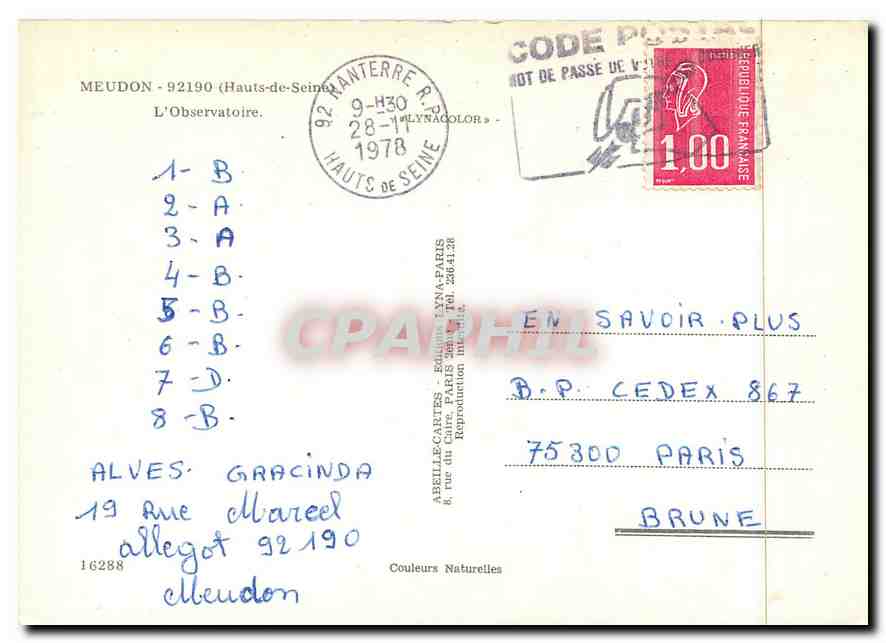 MEUDON - 92190 (Hauts-de-Seine)
L'Observatoire.
92 NANTERRE R.P.
9-H30
28-11
1978
HAUTS DE SEINE
«LYNACOLOR» -
CODE POSTAL
MOT DE PASSE DE
REPUBLIQUE FRANÇAISE
1,00
1- B
2- A-
3- A
4- B-
5- B-
6- B
7-D.
8-B-
ALVES. GRACINDA
19 Rue Marcel
allegot 92190
Meudon
16288
ABEILLE-CARTES - Editions LYNA-PARIS
8, rue du Caire, PARIS 2eme - Tel. 236.41.28
Reproduction interdite.
CPAPHIL
Couleurs Naturelles
EN SAVOIR.PLUS
B.P. CEDEX 867
75300 PARIS
BRUNE